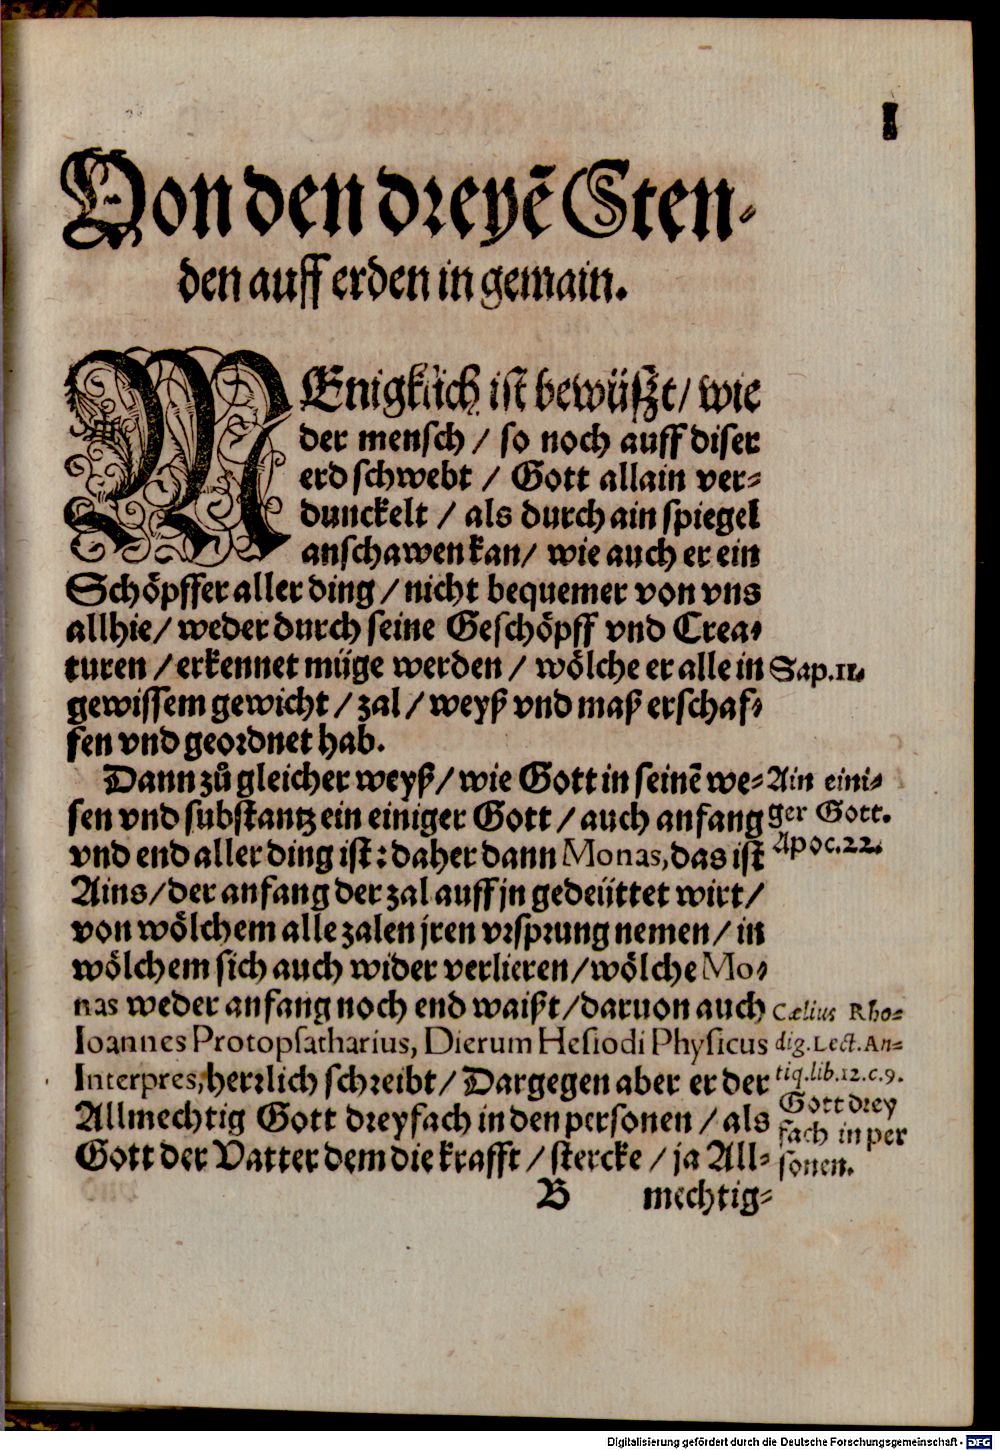 1
Von den dreyẽ Sten-
den auff erden in gemain.
MEnigklich ist bewüßt/ wie
der mensch / so noch auff diser
erd schwebt / Gott allain ver-
dunckelt / als durch ain spiegel
anschawen kan/ wie auch er ein
Schöpffer aller ding / nicht bequemer von vns
allhie/ weder durch seine Geschöpff vnd Crea-
turen / erkennet müge werden / wölche er alle in
Sap.11.
gewissem gewicht / zal / weyß vnd maß erschaf-
fen vnd geordnet hab.
Dann zů gleicher weyß/ wie Gott in seinẽ we-
Ain eini-
sen vnd substantz ein einiger Gott / auch anfang
ger Gott.
vnd end aller ding ist: daher dann Monas, das ist
Apoc.22.
Ains/ der anfang der zal auff jn gedeüttet wirt/
von wölchem alle zalen jren vrsprung nemen/ in
wölchem sich auch wider verlieren/wölche Mo-
nas weder anfang noch end waißt/daruon auch
Cælius Rho-
Ioannes Protopsatharius, Dierum Hesiodi Physicus
dig. Lect. An-
Interpres, herrlich schreibt/ Dargegen aber er der
tiq.lib.12.c.9.
Allmechtig Gott dreyfach in den personen / als
Gott drey
fach in per
Gott der Vatter dem die krafft / stercke / ja All-
sonen.
B mechtig-
Digitalisierung gefördert durch die Deutsche Forschungsgemeinschaft - DFG